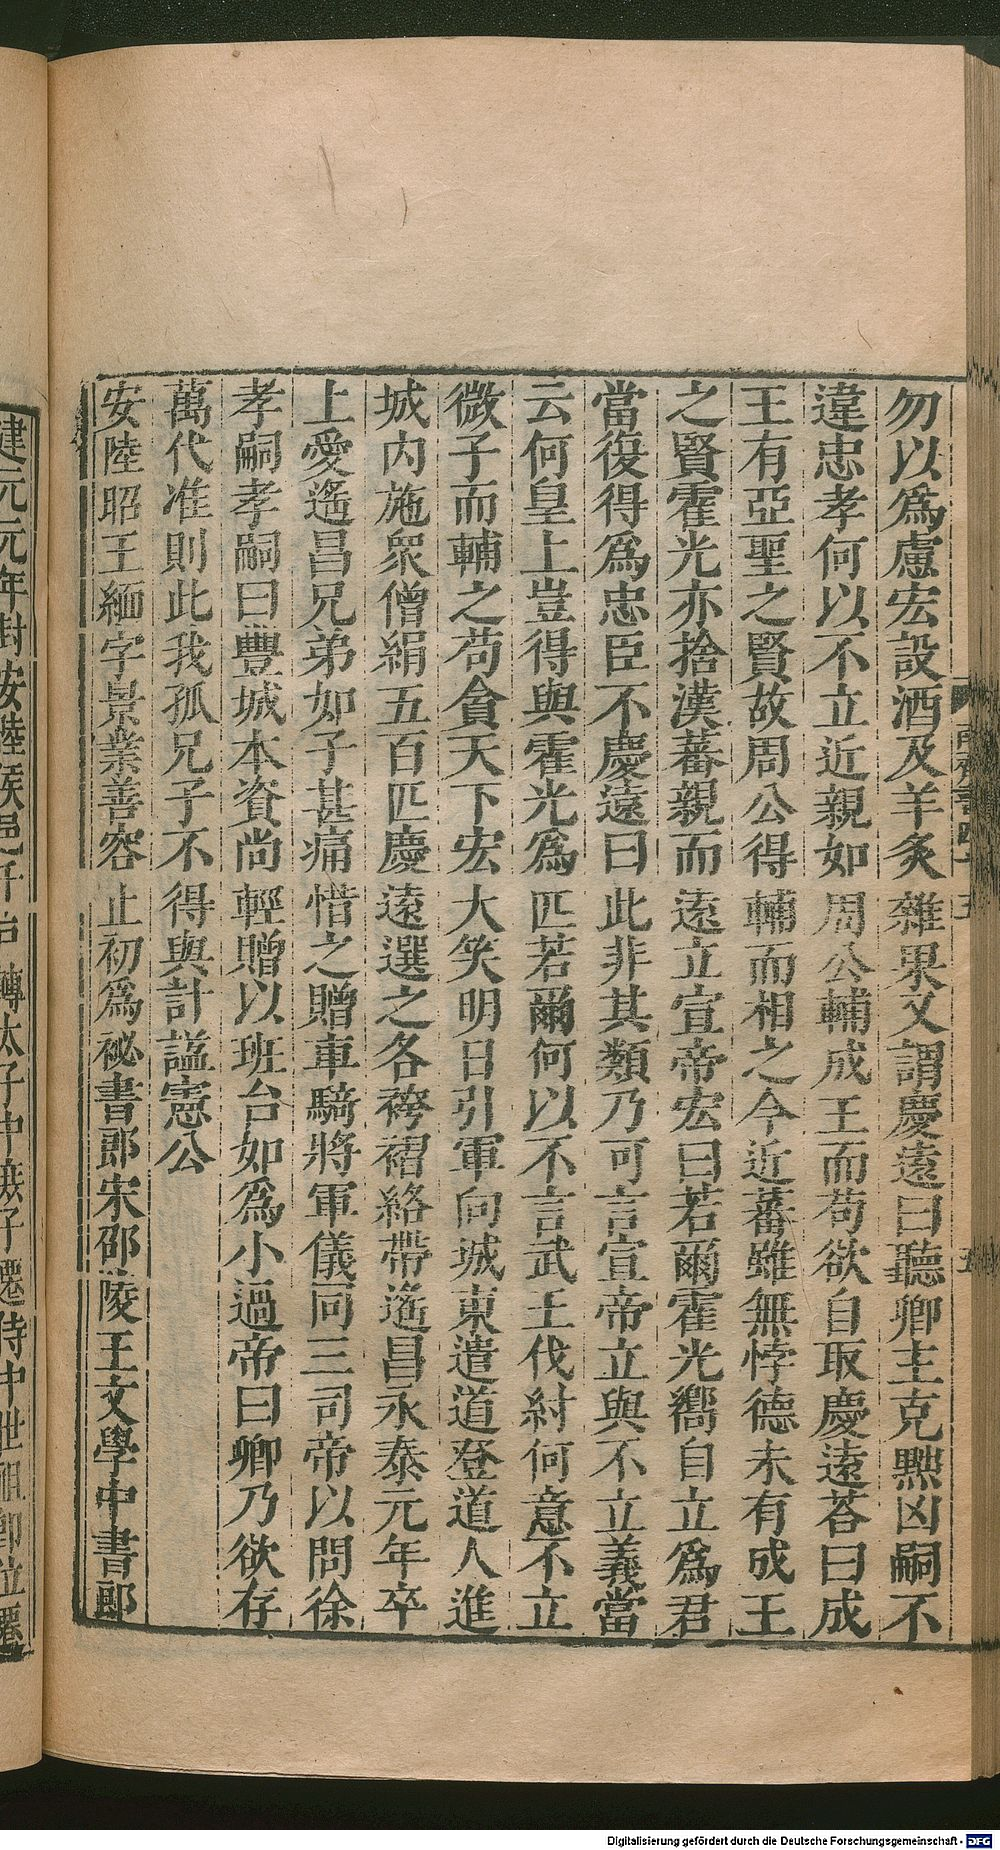 勿以爲慮宏設酒及羊炙雜果又謂慶遠曰聽卿主克黜凶嗣不
違忠孝何以不立近親如周公輔成王而苟欲自取慶遠荅曰成
王有亞聖之賢故周公得輔而相之今近蕃雖無悖德未有成王
之賢霍光亦捨漢蕃親而遠立宣帝宏曰若爾霍光嚮自立爲君
當復得爲忠臣不慶遠曰此非其類乃可言宣帝立與不立義當
云何皇上豈得與霍光爲匹若爾何以不言武王伐紂何意不立
微子而輔之苟貪天下宏大笑明日引軍向城東遣道登道人進
城内施眾僧絹五百匹慶遠選之各袴褶絡帶遙昌永泰元年卒
上愛遙昌兄弟如子甚痛惜之贈車騎將軍儀同三司帝以問徐
孝嗣孝嗣曰豐城本資尚輕贈以班台如爲小過帝曰卿乃欲存
萬代准則此我孤兄子不得與計諡憲公
安陸昭王緬字景業善容止初爲祕書郎宋邵陵王文學中書郎
建元元年封安陸侯邑千戶轉太子中庶子遷侍中世祖即位遷
Digitalisierung gefördert durch die Deutsche Forschungsgemeinschaft - DFG